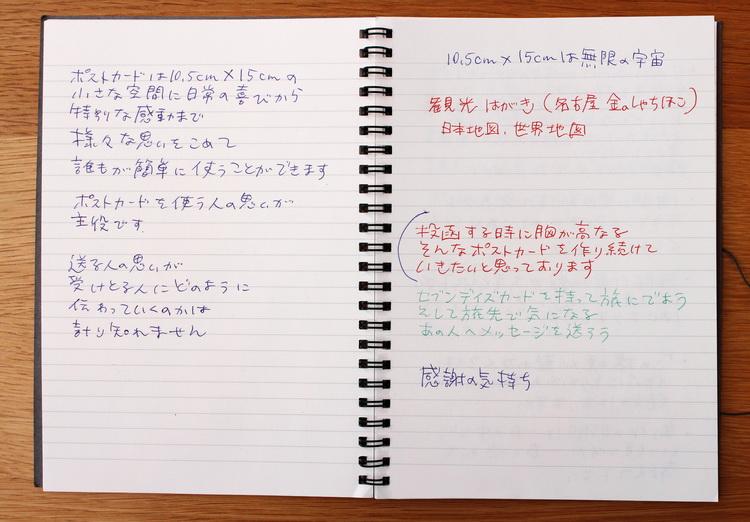 ポストカードは10.5cm×15cmの
小さな空間に日常の喜びから
特別な感動まで
様々な思いをこめて
誰もが簡単に使うことができます
ポストカードを使う人の思いが
主役です.
送る人の思いが
受けとる人にどのように
伝わっていくのかは
計り知れません
10.5cm×15cmは無限の宇宙
観光はがき(名古屋 金のしゃちほこ)
日本地図、世界地図
投函する時に胸が高なる
そんなポストカードを作り続けて
いきたいと思っております
セブンデイズカードを持って旅にでよう
そして旅先で気になる
あの人へメッセージを送ろう
感謝の気持ち